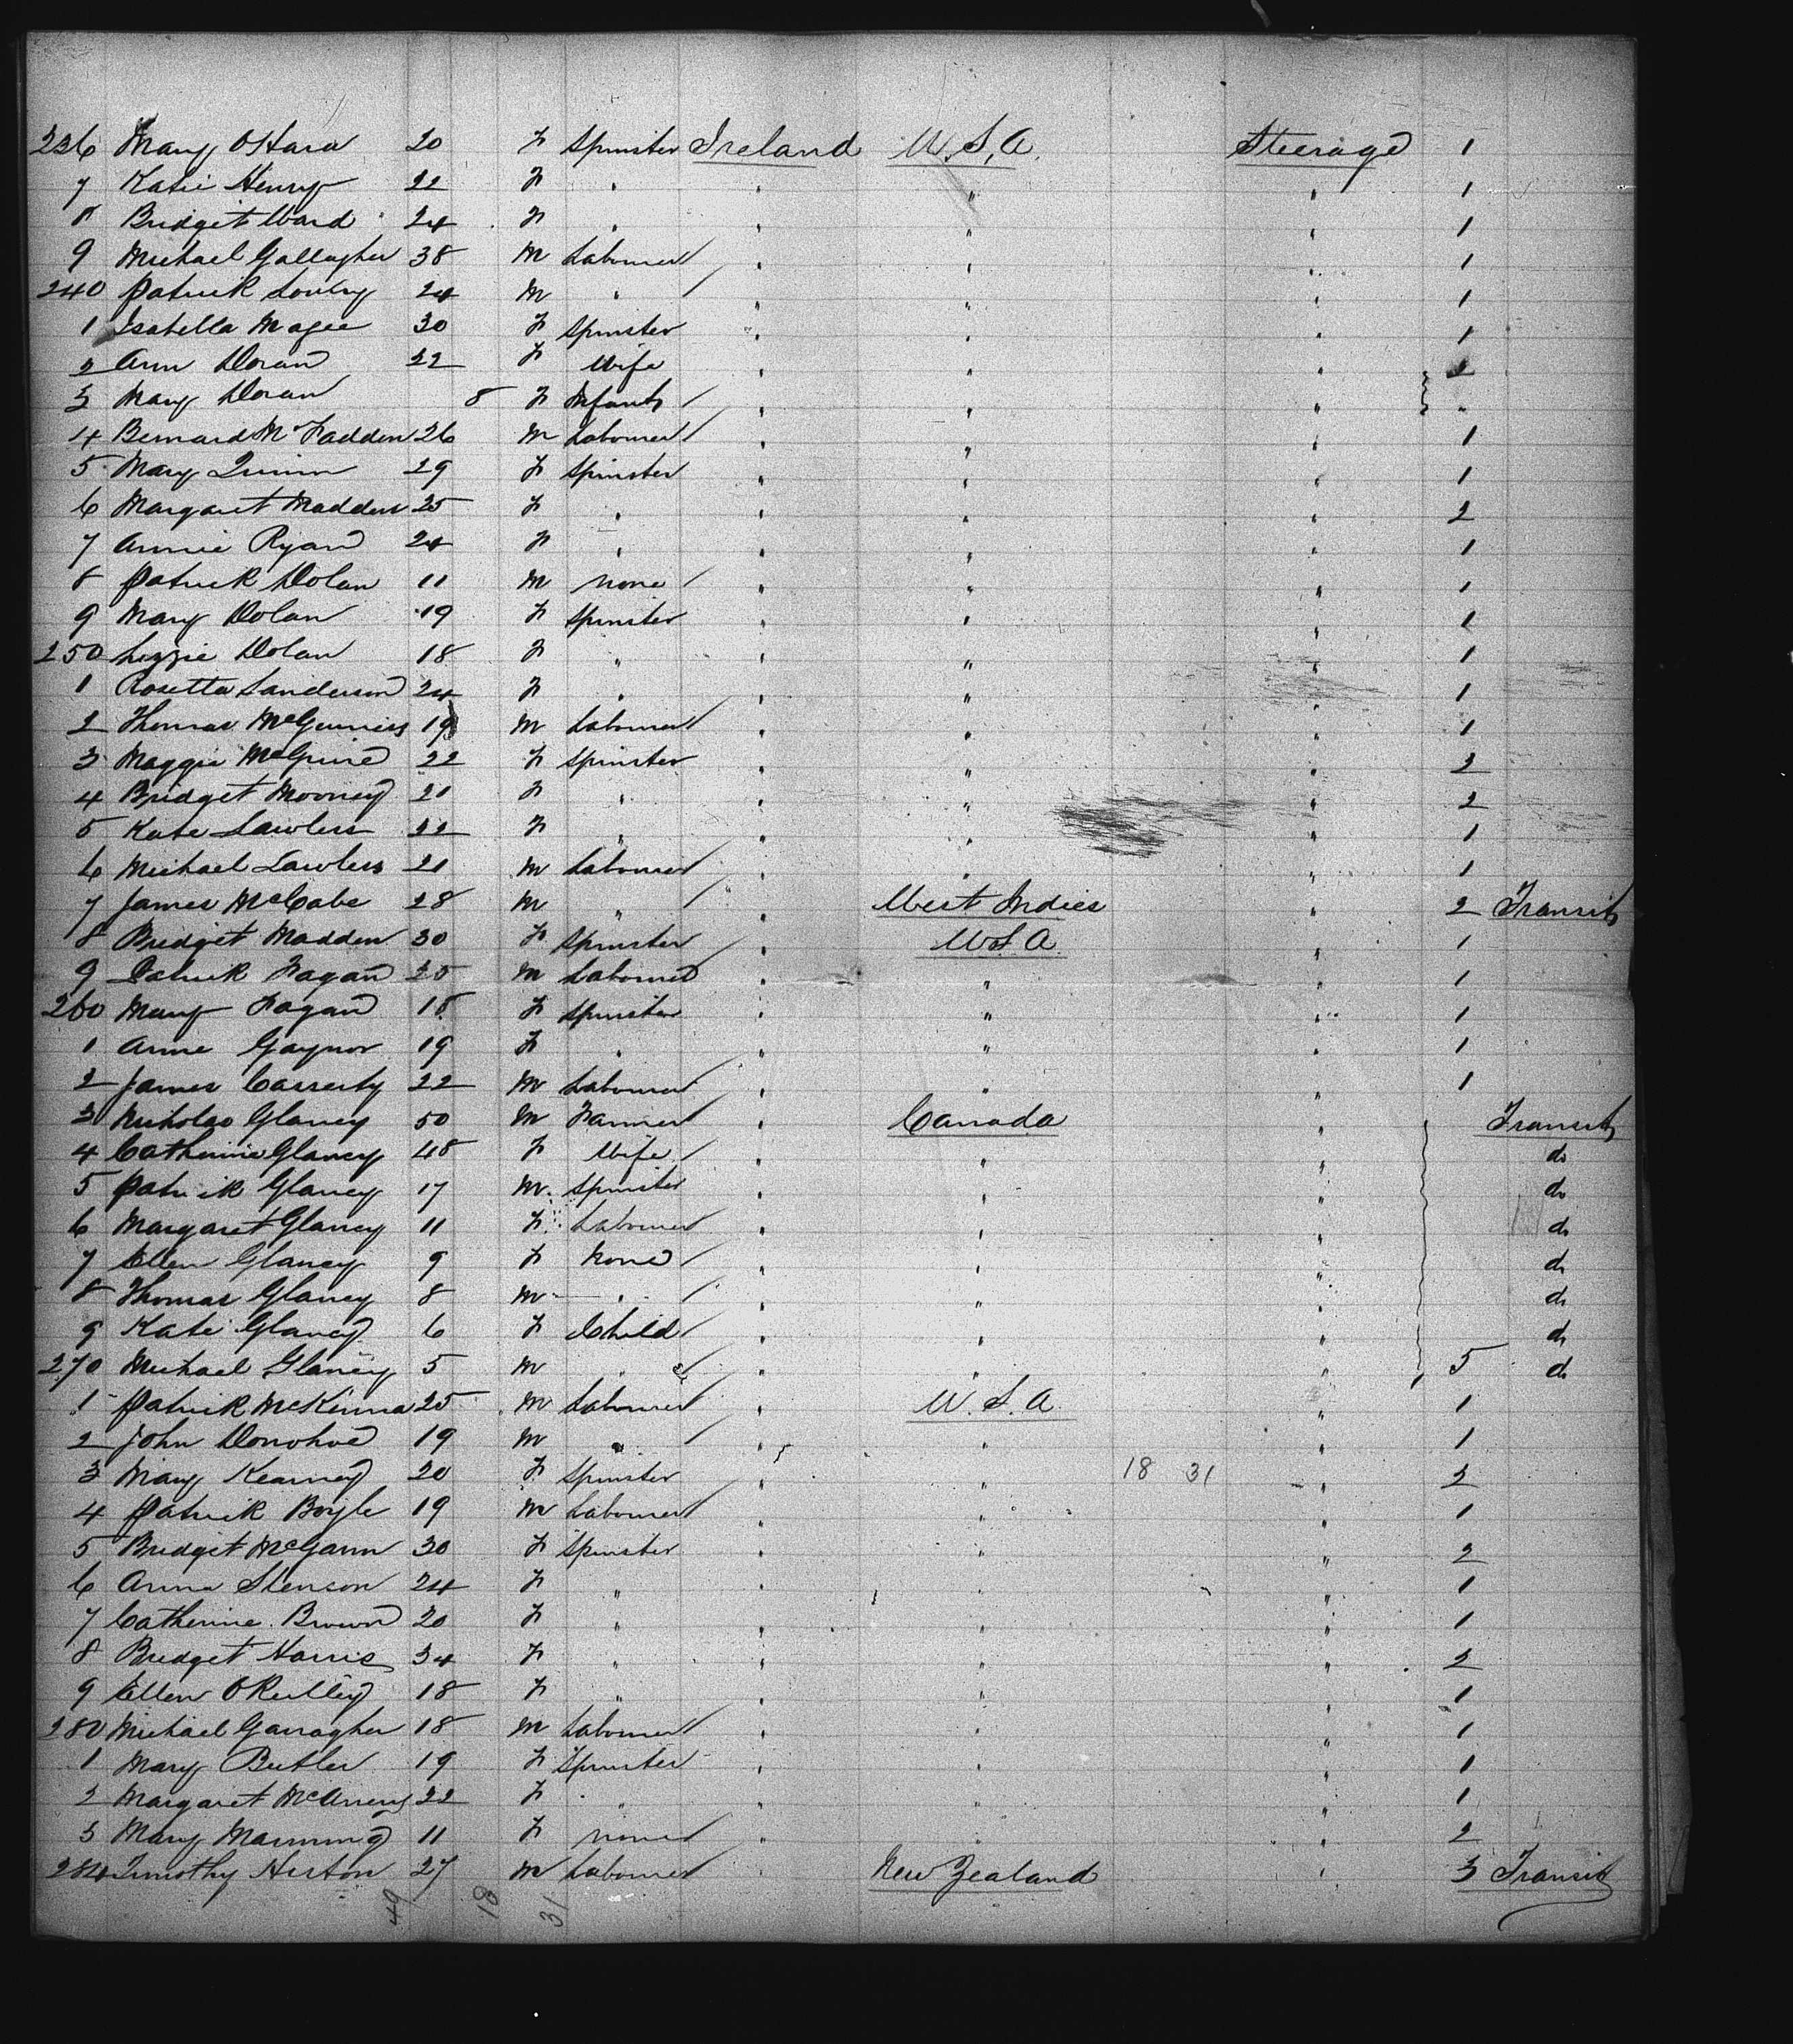 236 Mary O'Hara 20 F Spinster Ireland U.S.A. Steerage 1
7 Katie Henry 22 F " " " " 1
8 Bridget Ward 24 F " " " " 1
9 Michael Gallagher 38 M Labourer " " " 1
240 Patrick 24 M " " " " 1
1 Isabella Magee 30 F Spinster " " " 1
2 Ann Doran 22 F Wife " " "
3 Mary Doran 8 F Infant " " " "
4 Bernard McFadden 26 M Labourer " " " 1
5 Mary Quinn 29 F Spinster " " " 1
6 Margaret Madden 25 F " " " " 2
7 Annie Ryan 24 F " " " " 1
8 Patrick Dolan 11 M none " " " 1
9 Mary Dolan 19 F Spinster " " " 1
250 Lizzie Dolan 18 F " " " " 1
1 Rosetta Sanderson 24 F " " " " 1
2 Thomas McGuiness 19 M Labourer " " " 1
3 Maggie McGuire 22 F Spinster " " " 2
4 Bridget Mooney 21 F " " " " 2
5 Kate Lawless 22 F " " " " 1
6 Michael Lawless 21 M Labourer " " " 1
7 James McCabe 28 M " " West Indies " 2 Transit
8 Bridget Madden 30 F Spinster " U.S.A. " 1
9 Patrick Fagan 25 M Labourer " " 1
260 Mary Fagan 18 F Spinster " " " 1
1 Anne Gaynor 19 F " " " " 1
2 James Casserly 22 M Labourer " " " 1
3 Nicholas Glancy 50 M Farmer " Canada " Transit
4 Catherine Glancy 48 F Wife " " " do
5 Patrick Glancy 17 M Spinster " " " do
6 Margaret Glancy 11 F Labourer " " " do
7 Ellen Glancy 9 F None " " " do
8 Thomas Glancy 8 M " " " " do
9 Kate Glancy 6 F Child " " " do
270 Michael Glancy 5 M " " " " 5 do
1 Patrick McKenna 25 M Labourer " U.S.A. " 1
2 John Donohoe 19 M " " " " 1
3 Mary Kearney 20 F Spinster " " 18 31 " 2
4 Patrick Boyle 19 M Labourer " " " 1
5 Bridget McGann 30 F Spinster " " " 2
6 Anna Stenson 24 F " " " " 1
7 Catherine Brown 20 F " " " " 1
8 Bridget Harris 34 F " " " " 2
9 Ellen O'Reilley 18 F " " " " 1
280 Michael Garragher 18 M Labourer " " " 1
1 Mary Butler 19 F Spinster " " " 1
2 Margaret 22 F " " " " 1
3 Mary Manning 11 F none " " " 2
284 Timothy 27 M Labourer " New Zealand " 3 Transit
49 18 31